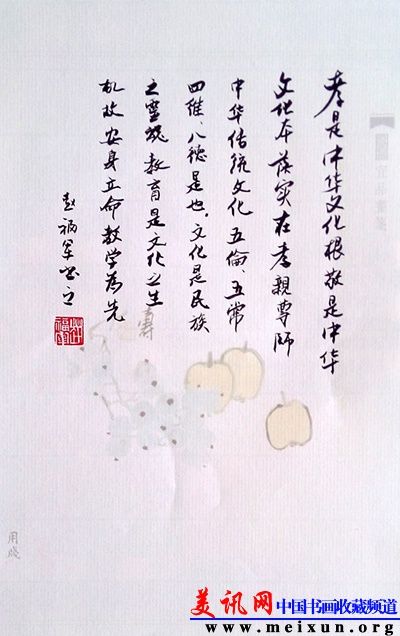 孝是中华文化根敬是中华
文化本落实在孝親尊师
中华传统文化五倫、五常
四维、八德是也。文化是民族
之靈魂教育是文化之生
机故安身立命教学為先
赵福军书之
用笺
美讯网
中国书画收藏频道
www.meixun.org